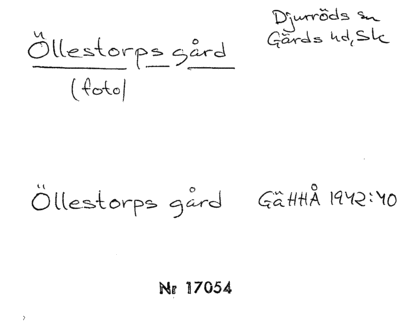 Öllestorps gård
(foto)
Djurröds sn
Gärds hd, Sk
Öllestorps gård GäHHÅ 1942:40
Nr 17054